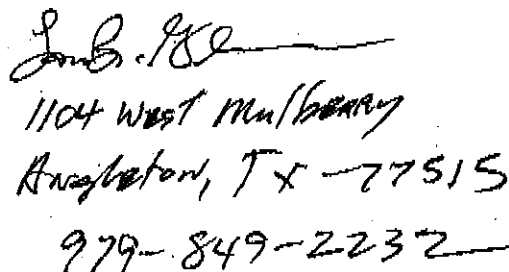 1104 West Mulberry
Angleton, Tx - 77515
979-849-2232